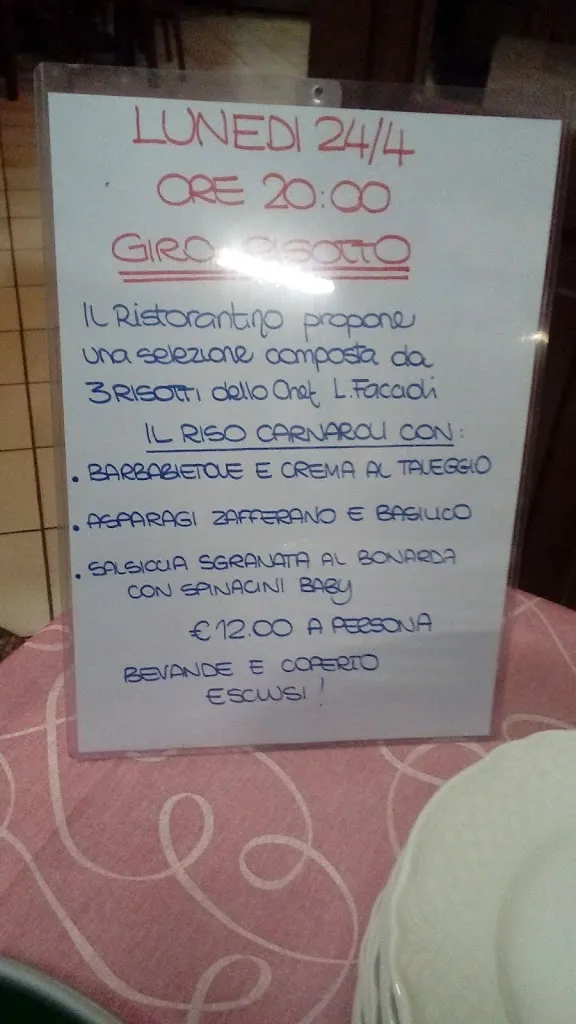 LUNEDI 24/4
ORE 20:00
GIRO RISOTTO
IL Ristorantino propone
una selezione composta da
3 RISOTTI dello Chef L. Faccioli
IL RISO CARNAROLI CON:
. BARBABIETOLE E CREMA AL TALEGGIO
. ASPARAGI ZAFFERANO E BASILICO
. SALSICCIA SGRANATA AL BONARDA
CON SPINACINI BABY
€ 12.00 A PERSONA
BEVANDE E COPERTO
ESCLUSI !